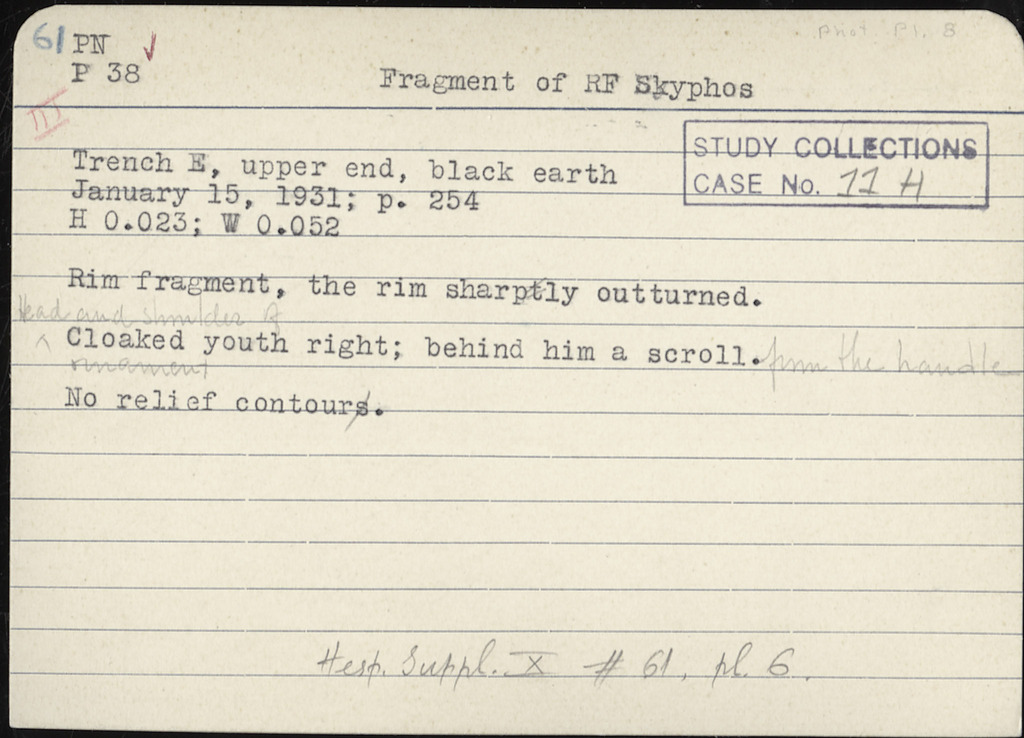 61 PN ✓ phot Pl. 8
P 38 Fragment of RF Skyphos
III
STUDY COLLECTIONS
CASE No. 11 H
Trench E, upper end, black earth
January 15, 1931; p. 254
H 0.023; W 0.052
Rim fragment, the rim sharply outturned.
Head and shoulder of
^ Cloaked youth right; behind him a scroll. from the handle
ornament
No relief contour.
Hesp. Suppl. X # 61, pl. 6.